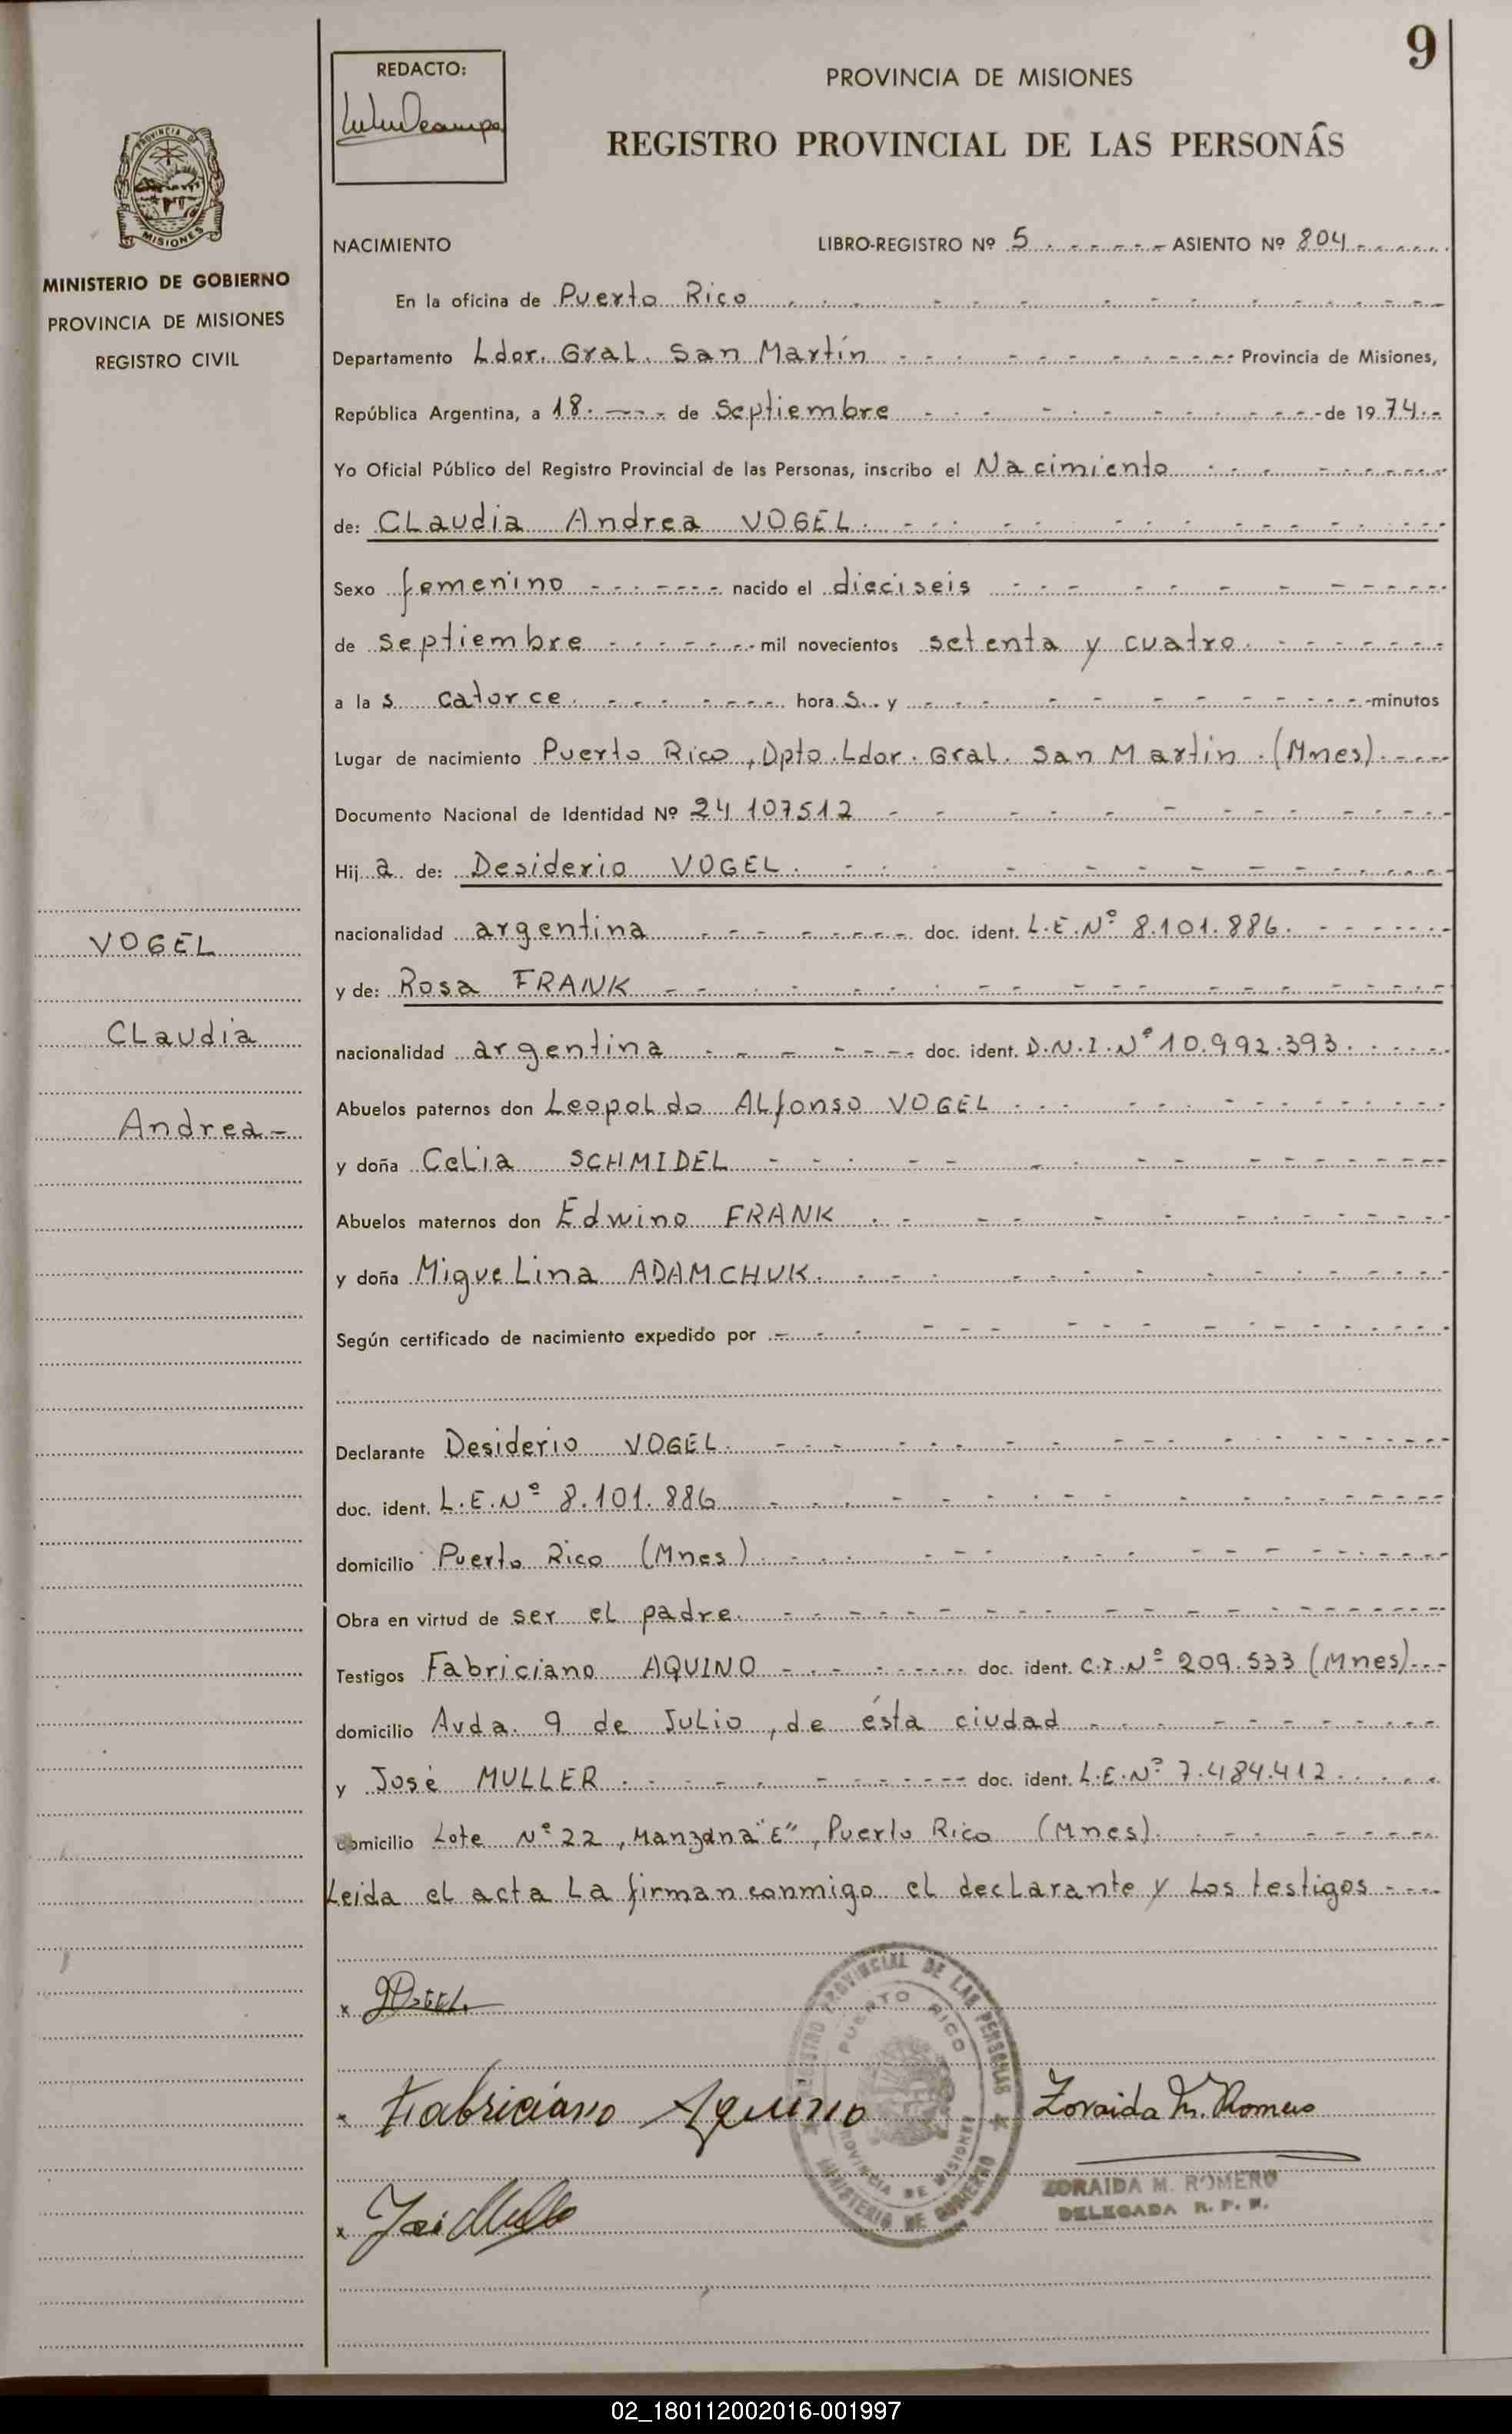 9
REDACTO:
PROVINCIA DE MISIONES
REGISTRO PROVINCIAL DE LAS PERSONAS
PROVINCIA DE
MISIONES
MINISTERIO DE GOBIERNO
PROVINCIA DE MISIONES
REGISTRO CIVIL
NACIMIENTO LIBRO-REGISTRO Nº 5 ASIENTO Nº 804
En la oficina de Puerto Rico
Departamento Ldor. Gral. San Martín Provincia de Misiones,
República Argentina, a 18 de Septiembre de 19 74
Yo Oficial Público del Registro Provincial de las Personas, inscribo el Nacimiento
de: Claudia Andrea VOGEL
Sexo femenino nacido el dieciseis
de septiembre mil novecientos setenta y cuatro
a la s catorce hora s y minutos
Lugar de nacimiento Puerto Rico, Dpto. Ldor. Gral. San Martín (Mnes)
Documento Nacional de Identidad Nº 24 107512
Hij a de: Desiderio VOGEL
nacionalidad argentina doc. ident. L.E.Nº 8.101.886
y de: Rosa FRANK
nacionalidad argentina doc. ident. D.N.I.Nº 10.992.393
Abuelos paternos don Leopoldo Alfonso VOGEL
y doña Celia SCHMIDEL
Abuelos maternos don Edwino FRANK
y doña Miguelina ADAMCHUK
Según certificado de nacimiento expedido por
VOGEL
Claudia
Andrea
Declarante Desiderio VOGEL
doc. ident. L.E.Nº 8.101.886
domicilio Puerto Rico (Mnes)
Obra en virtud de ser el padre
Testigos Fabriciano AQUINO doc. ident. C.I.Nº 209.533 (Mnes)
domicilio Avda. 9 de Julio, de ésta ciudad
y José MULLER doc. ident. L.E.Nº 7.484.412
domicilio Lote Nº 22, Manzana "E", Puerto Rico (Mnes)
Leida el acta la firman conmigo el declarante y los testigos
x
REGISTRO PROVINCIAL DE LAS PERSONAS
PUERTO RICO
PROVINCIA DE MISIONES
MINISTERIO DE GOBIERNO
x Fabriciano Aquino
Zoraida M. Romero
ZORAIDA M. ROMERO
DELEGADA R. P. P.
x José Muller
02_180112002016-001997